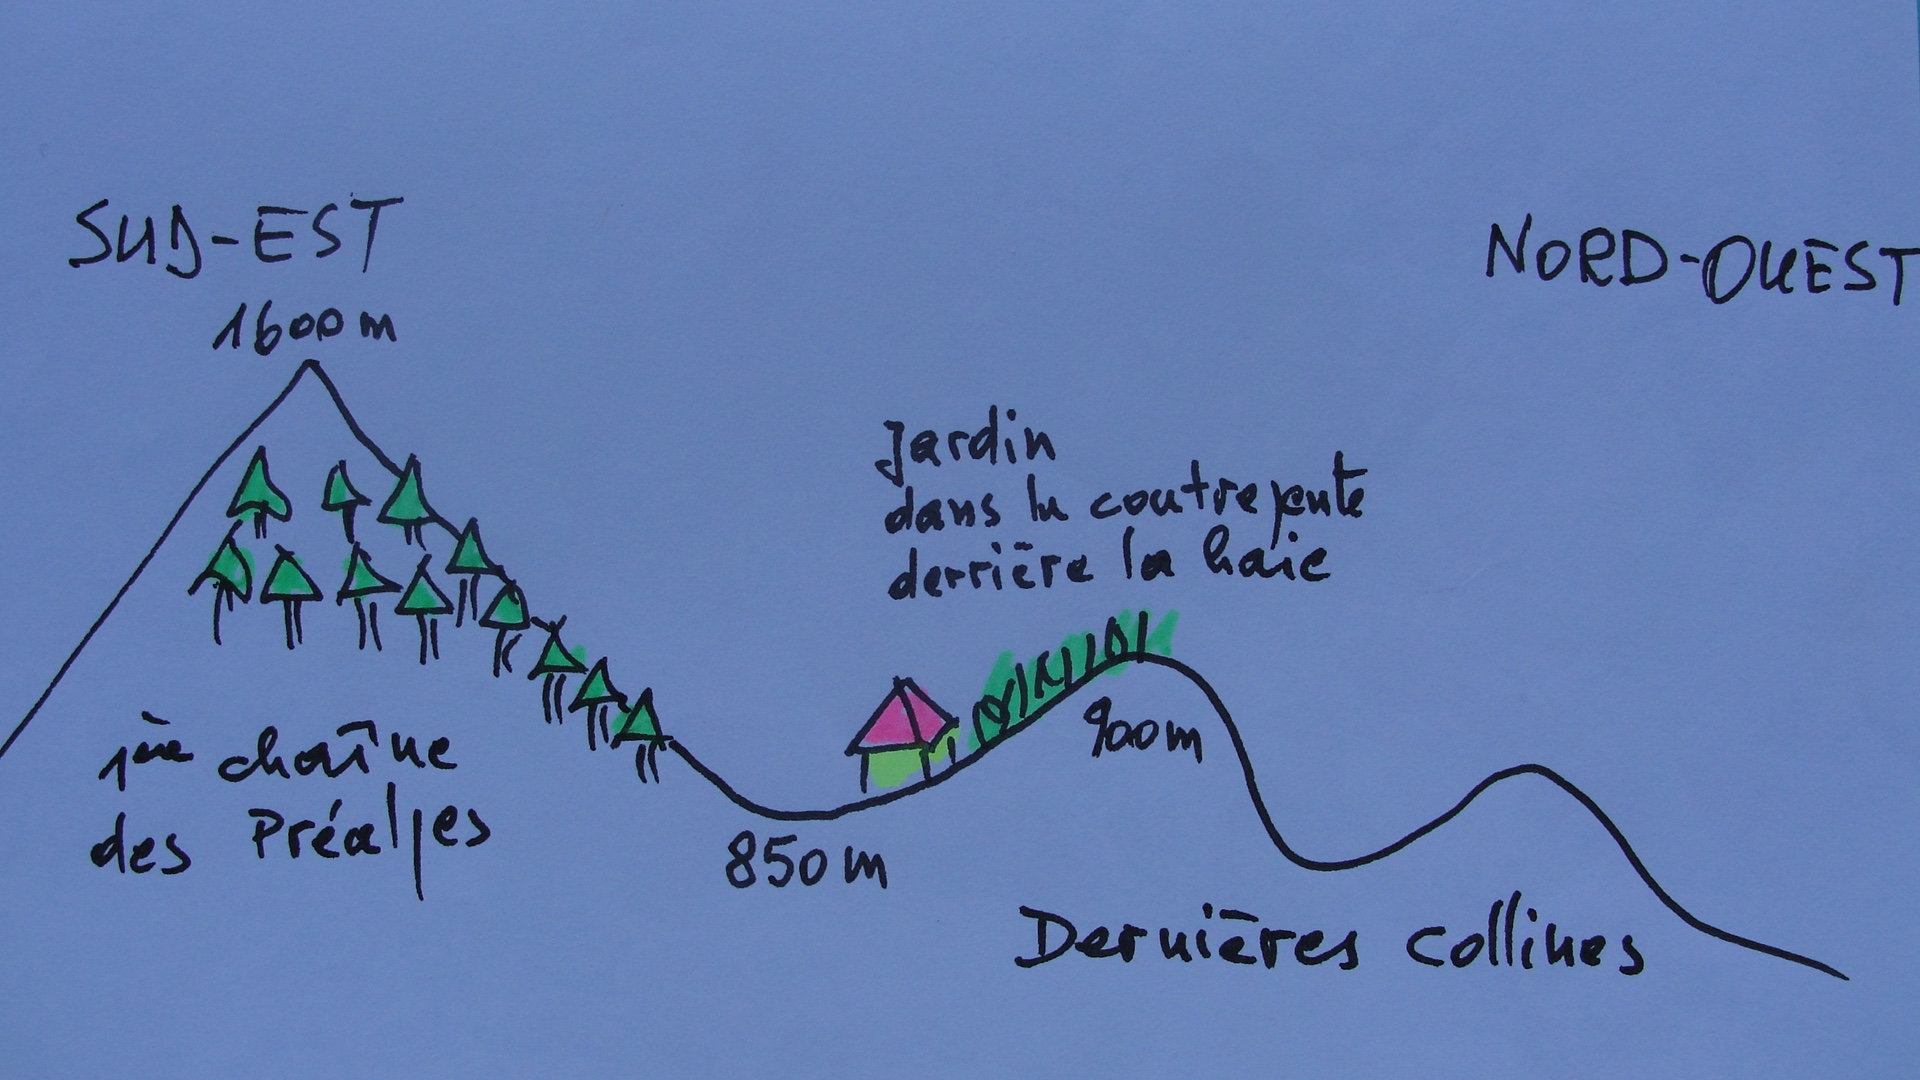 SUD-EST
1600 m
NORD-OUEST
Jardin
dans la contrepente
derrière la haie
900 m
1ère chaîne
des Préalpes
850 m
Dernières collines